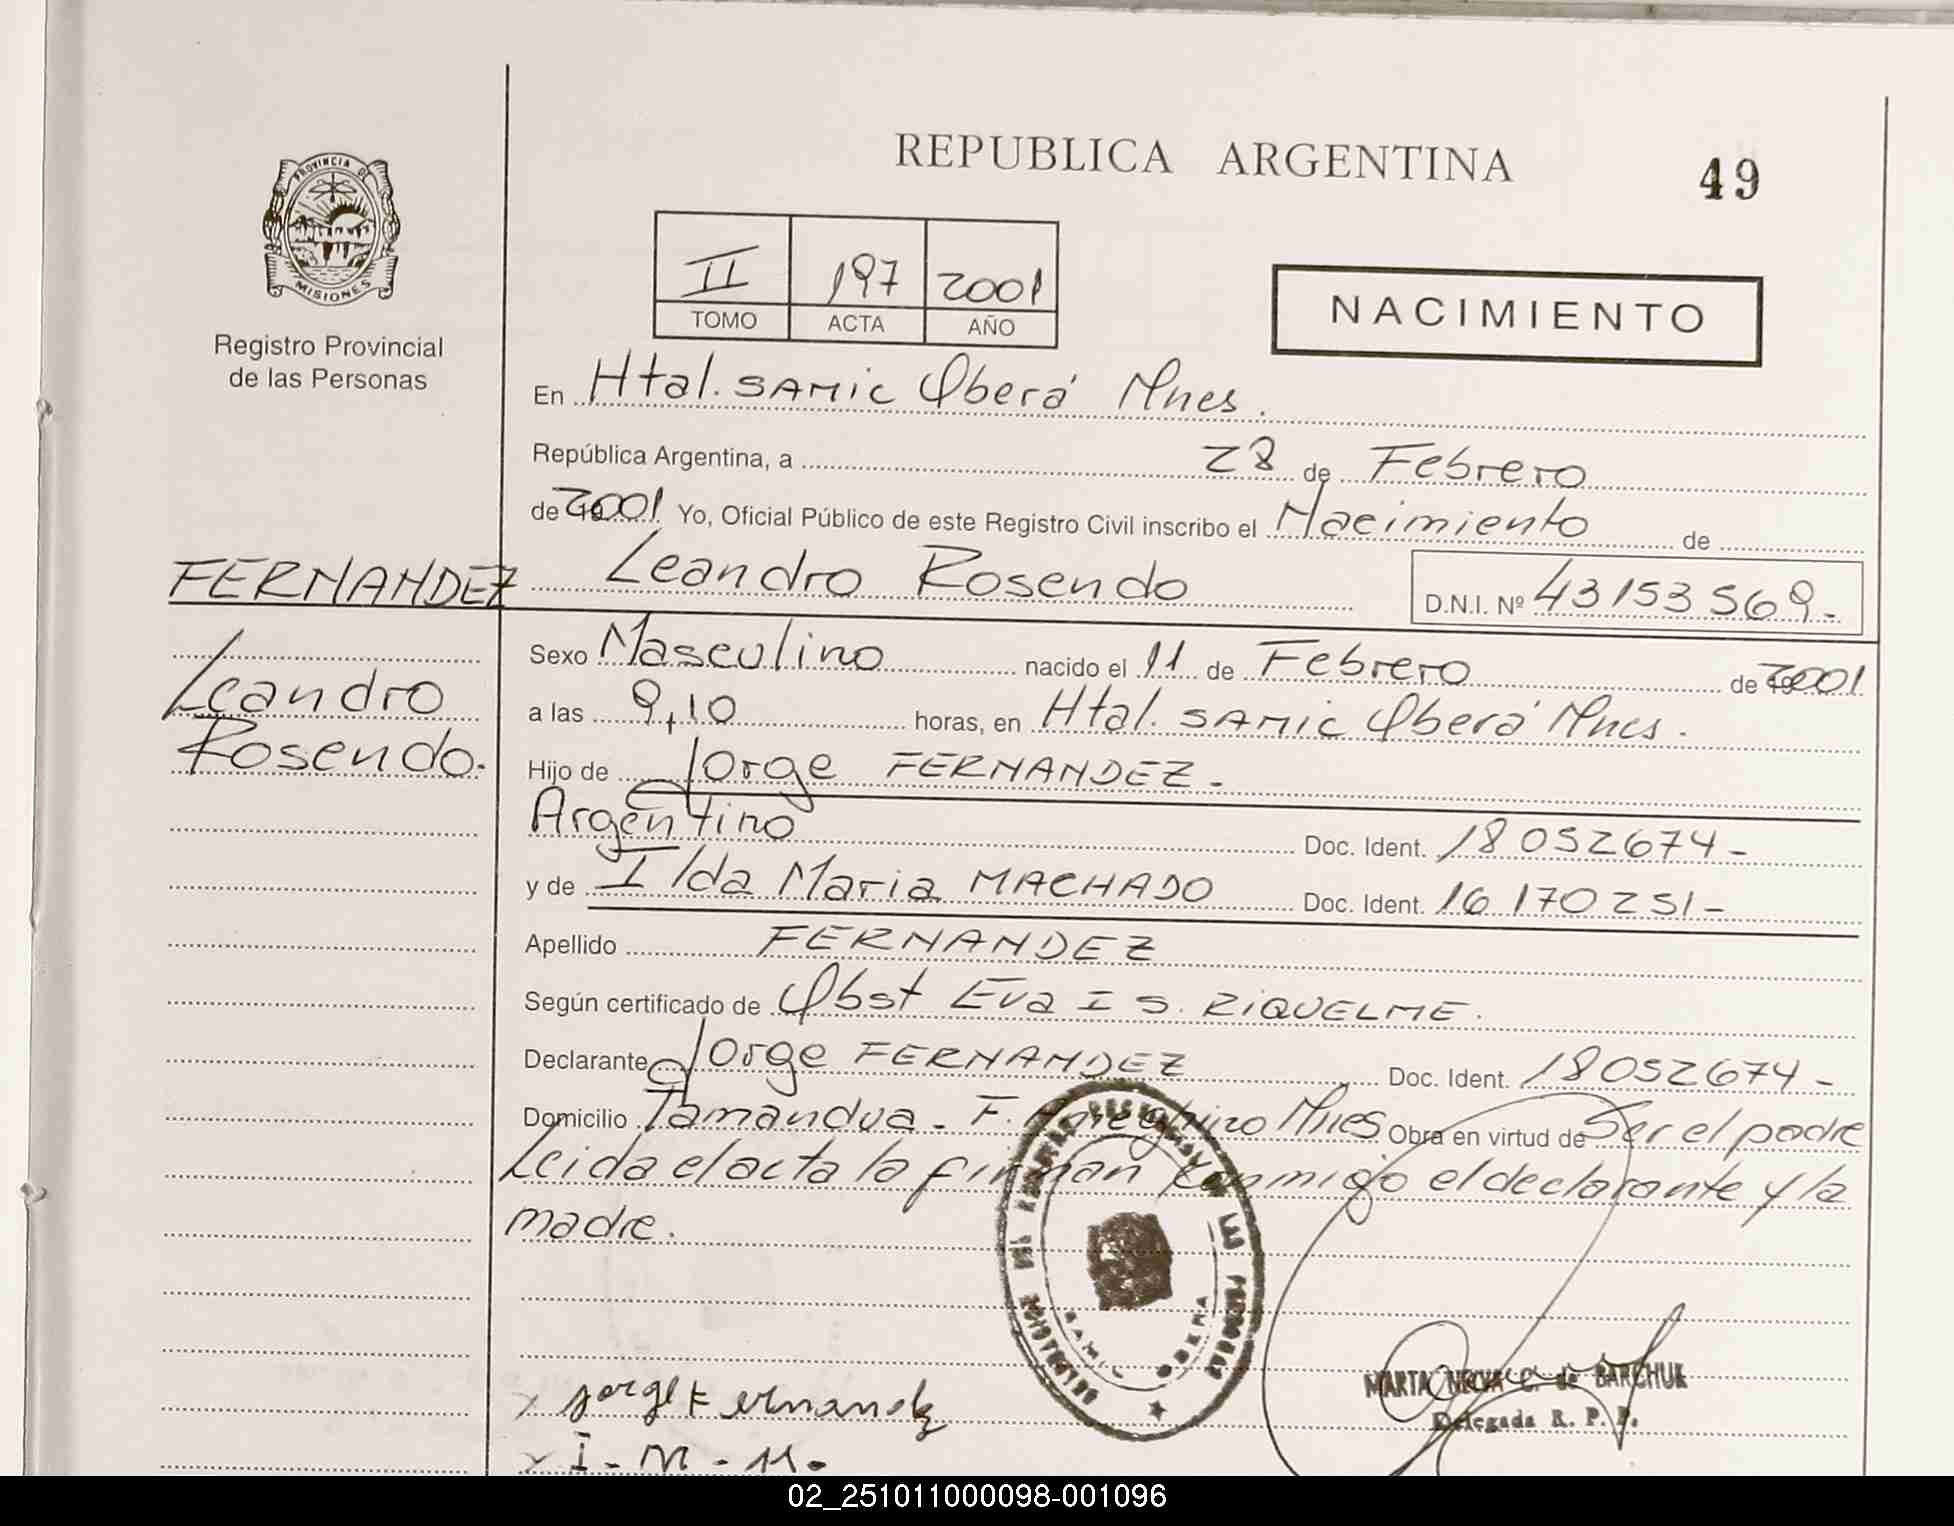 REPUBLICA ARGENTINA
49
PROVINCIA DE
MISIONES
Registro Provincial
de las Personas
II 197 2001
TOMO ACTA AÑO
NACIMIENTO
En Htal. SAMIC Oberá Mnes.
República Argentina, a 28 de Febrero
de 2001 Yo, Oficial Público de este Registro Civil inscribo el Nacimiento de
FERNANDEZ Leandro Rosendo D.N.I. Nº 43153569.-
Leandro
Rosendo.
Sexo Masculino nacido el 11 de Febrero de 2001
a las 9,10 horas, en Htal. SAMIC Oberá Mnes.
Hijo de Jorge FERNANDEZ.
Argentino Doc. Ident. 18052674-
y de Ilda Maria MACHADO Doc. Ident. 16170251-
Apellido FERNANDEZ
Según certificado de Obst Eva I S. RIQUELME.
Declarante Jorge FERNANDEZ Doc. Ident. 18052674-
Domicilio Tamandua - F. Ameghino Mnes Obra en virtud de Ser el padre
Leida el acta la firman conmigo el declarante y la
madre.
DELEGACION DEL REGISTRO DE LAS PERSONAS
SAMIC OBERA
MARTA C. de BARCHUK
Delegada R. P. P.
x jorge Fernandez
x I - M - M -
02_251011000098-001096